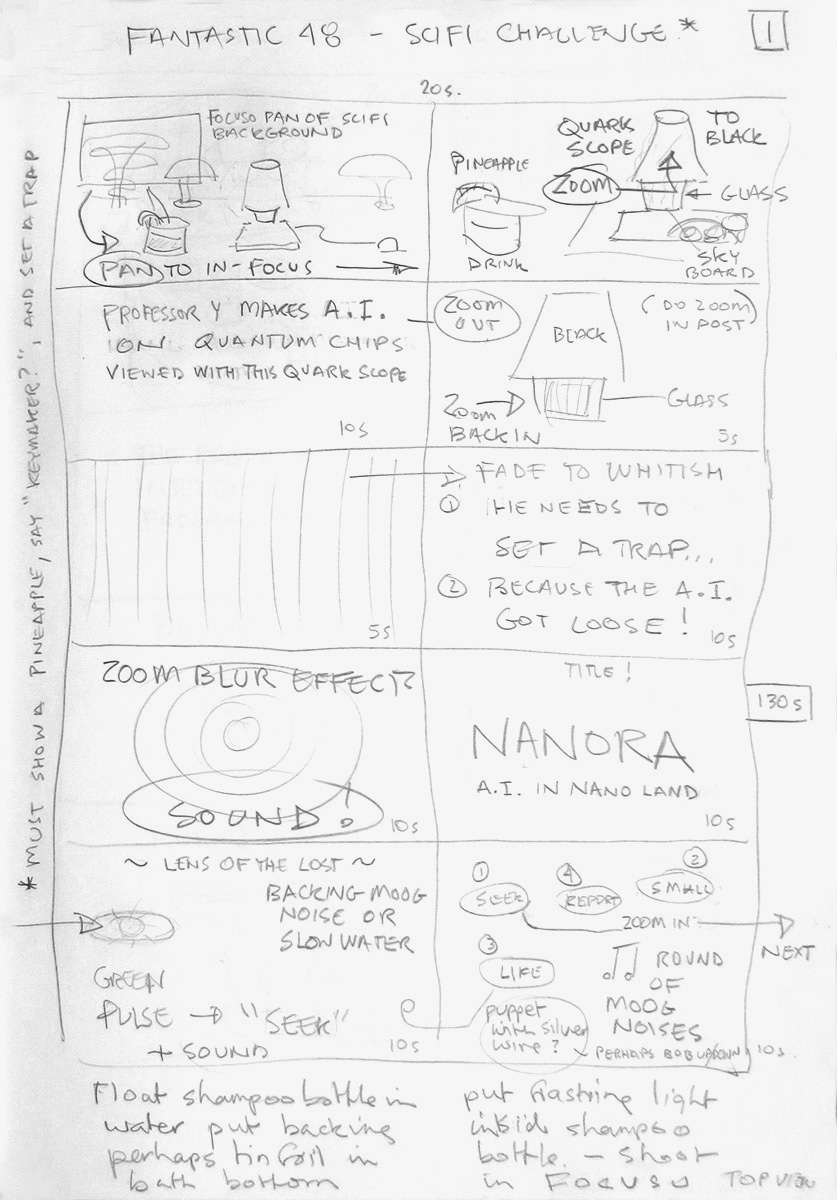 FANTASTIC 48 - SCIFI CHALLENGE *
1
20s.
FOCUSO PAN OF SCIFI
BACKGROUND
PAN TO IN-FOCUS
PINEAPPLE
DRINK
QUARK
SCOPE
TO
BLACK
ZOOM
GLASS
SKY
BOARD
PROFESSOR Y MAKES A.I.
ION QUANTUM CHIPS
VIEWED WITH THIS QUARK SCOPE
10s
ZOOM
OUT
BLACK
(DO ZOOM
IN POST)
GLASS
ZOOM
BACK IN
5s
5s
FADE TO WHITISH
① HE NEEDS TO
SET A TRAP...
② BECAUSE THE A.I.
GOT LOOSE!
10s
ZOOM BLUR EFFECT?
SOUND!
10s
TITLE!
NANORA
A.I. IN NANO LAND
10s
130s
~ LENS OF THE LOST ~
BACKING MOOG
NOISE OR
SLOW WATER
GREEN
PULSE → "SEEK"
+ SOUND
10s
① SEEK
④ REPORT
② SMALL
ZOOM IN
NEXT
③ LIFE
puppet
with silver
wire?
♫ ROUND
OF
MOOG
NOISES
~ PERHAPS BOB UP/DOWN
10s
Float shampoo bottle in
water put backing
perhaps tin foil in
bath bottom
put light
inside shampoo
bottle. - shoot
in FOCUSU TOP VIEW
* MUST SHOW A PINEAPPLE, SAY "KEYMAKER?", AND SET A TRAP